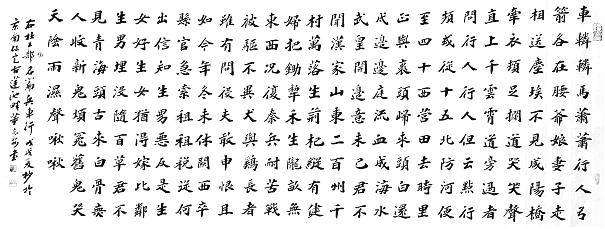 車轔轔馬蕭蕭行人弓
箭各在腰爺娘妻子走
相送塵埃不見咸陽橋
牽衣頓足攔道哭哭聲
直上干雲霄道旁過者
問行人行人但云點行
頻或從十五北防河便
至四十西營田去時里
正與裹頭歸來頭白還
戍邊邊庭流血成海水
武皇開邊意未已君不
聞漢家山東二百州千
村萬落生荊杞縱有健
婦把鋤犁禾生隴畝無
東西況復秦兵耐苦戰
被驅不異犬與雞長者
雖有問役夫敢申恨且
如今年冬未休關西卒
縣官急索租租稅從何
出信知生男惡反是生
女好生女猶得嫁比鄰
生男埋沒隨百草君不
見青海頭古來白骨無
人收新鬼煩冤舊鬼哭
天陰雨濕聲啾啾
右杜工部名篇兵車行戊戌夏抄於
京南保定古蓮池畔